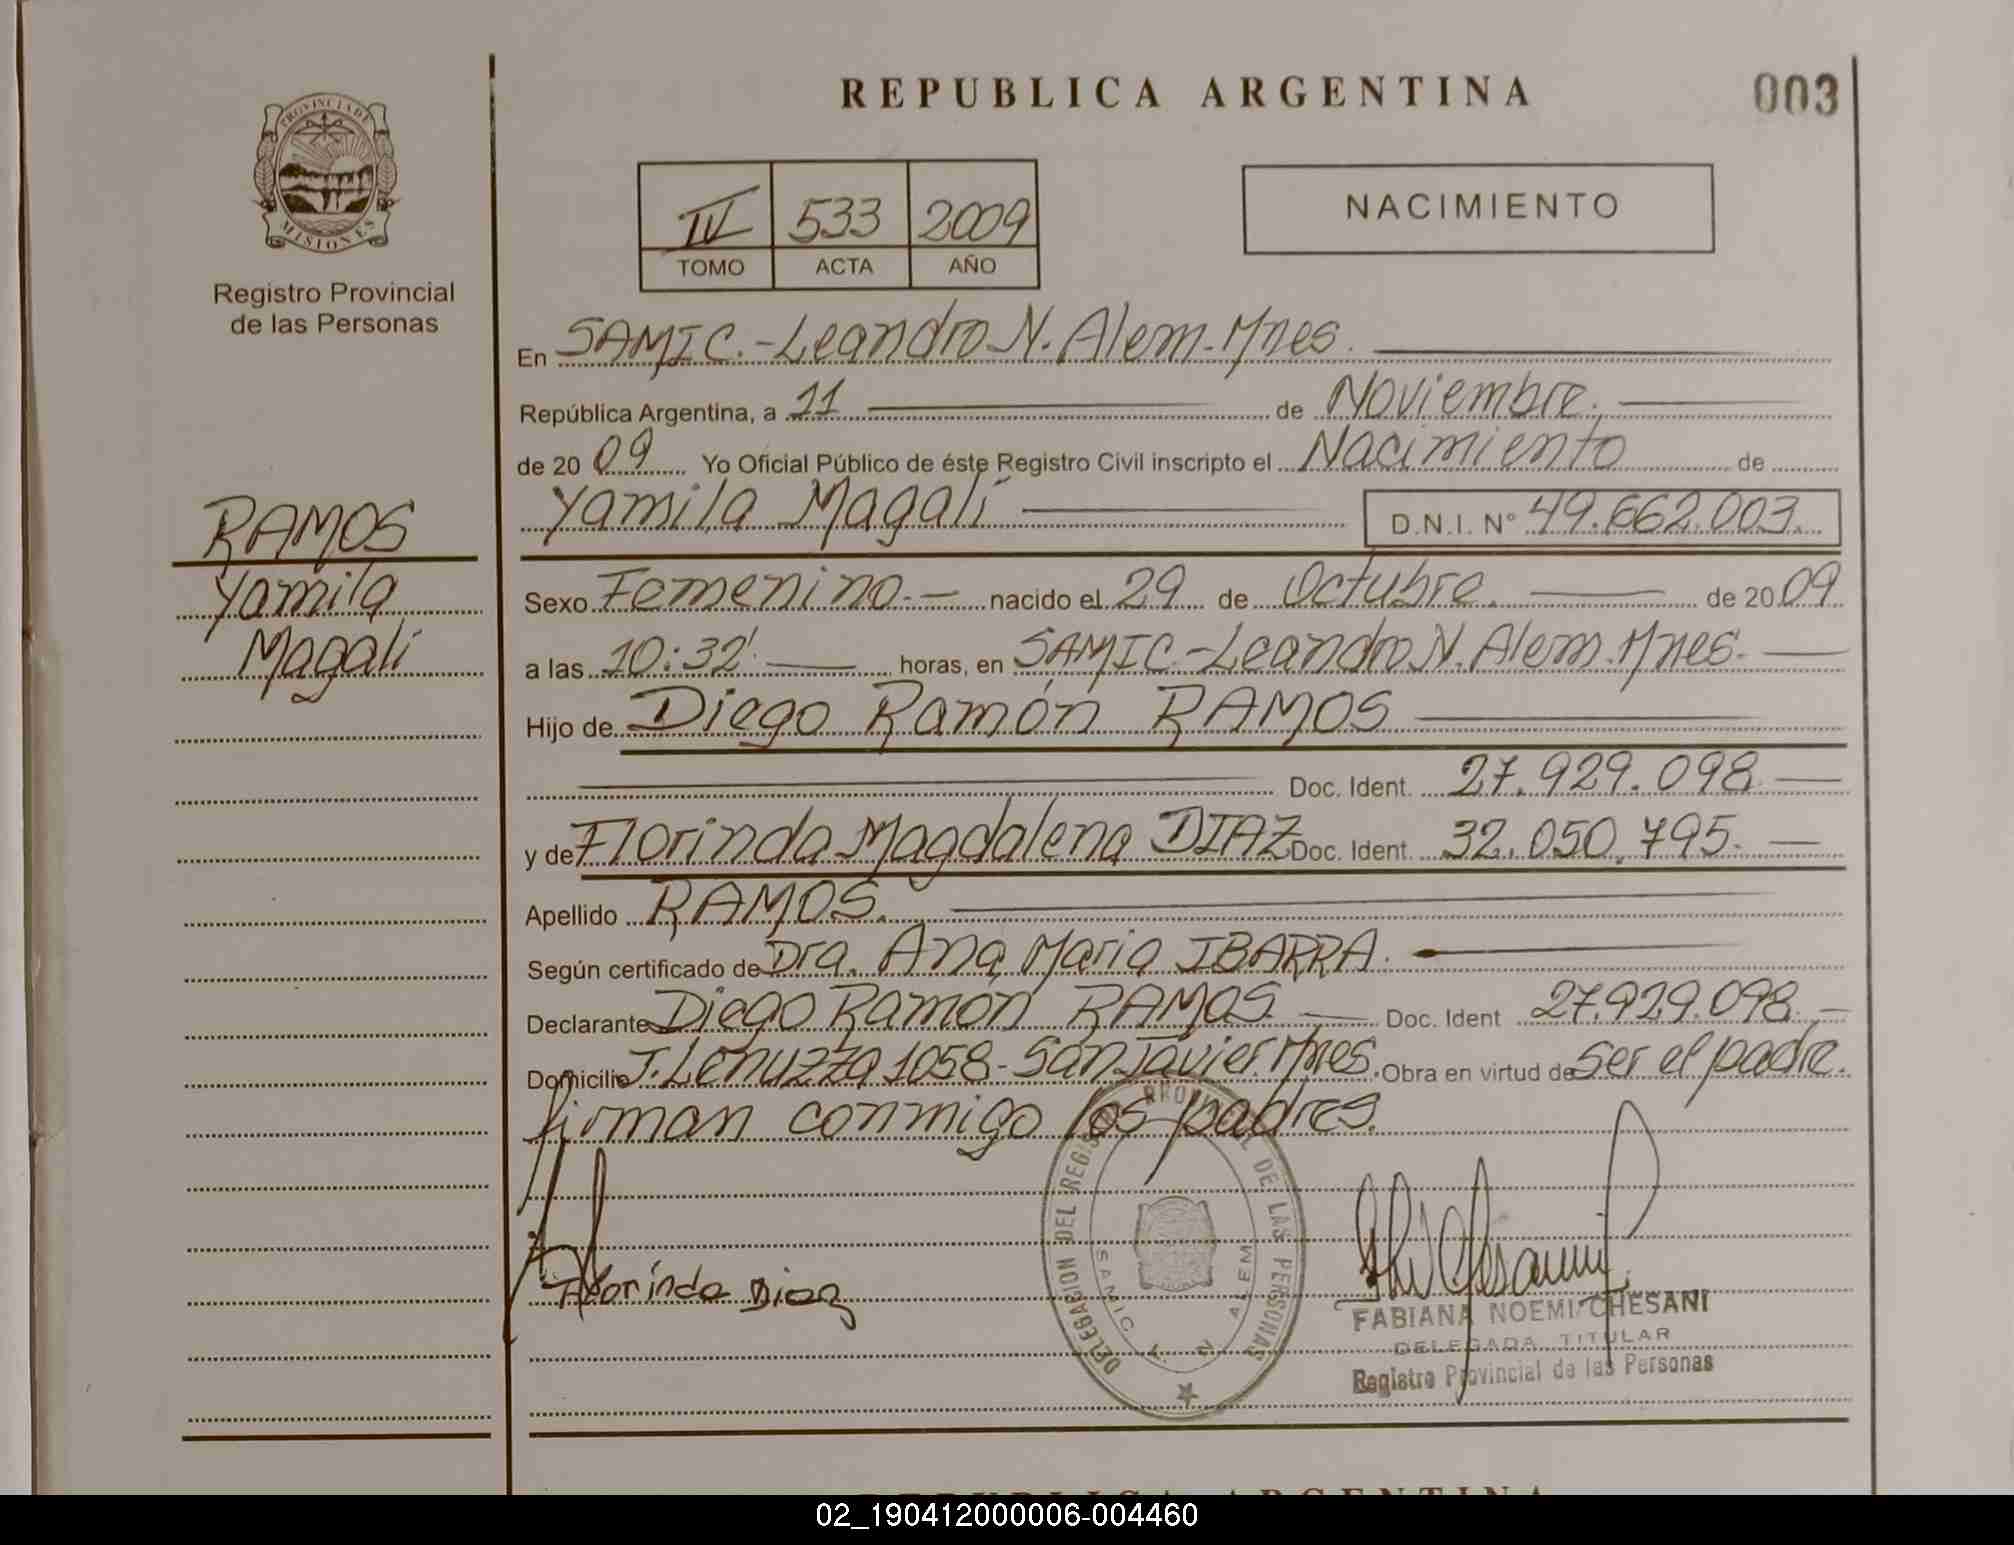 REPUBLICA ARGENTINA
003
PROVINCIA DE
MISIONES
Registro Provincial
de las Personas
IV 533 2009
TOMO ACTA AÑO
NACIMIENTO
En SAMIC.-Leandro N. Alem-Mnes.
República Argentina, a 11 de Noviembre.
de 2009 Yo Oficial Público de éste Registro Civil inscripto el Nacimiento de
Yamila Magalí D.N.I. N° 49.662.003.
RAMOS
Yamila
Magalí
Sexo Femenino.- nacido el 29 de Octubre. de 2009
a las 10:32' horas, en SAMIC.-Leandro N. Alem.Mnes.
Hijo de Diego Ramón RAMOS
Doc. Ident. 27.929.098
y de Florinda Magdalena DIAZ Doc. Ident. 32.050.795.
Apellido RAMOS.
Según certificado de Dra. Ana Maria IBARRA.
Declarante Diego Ramón RAMOS Doc. Ident 27.929.098
Domicilio J. Lenuzza 1058-San Javier.Mnes. Obra en virtud de ser el padre.
firman conmigo los padres.
Florinda Diaz
DELEGACION DEL REGISTRO PROVINCIAL DE LAS PERSONAS
SAMIC L. N. ALEM
FABIANA NOEMI CHESANI
DELEGADA TITULAR
Registro Provincial de las Personas
REPUBLICA ARGENTINA
02_190412000006-004460